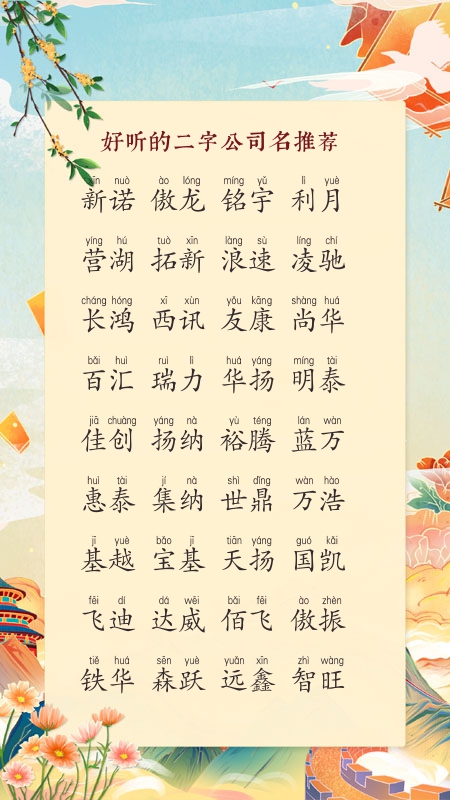 好听的二字公司名推荐
xīn nuò ào lóng míng yǔ lì yuè
新诺 傲龙 铭宇 利月
yíng hú tuò xīn làng sù líng chí
营湖 拓新 浪速 凌驰
cháng hóng xī xùn yǒu kāng shàng huá
长鸿 西讯 友康 尚华
bǎi huì ruì lì huá yáng míng tài
百汇 瑞力 华扬 明泰
jiā chuàng yáng nà yù téng lán wàn
佳创 扬纳 裕腾 蓝万
huì tài jí nà shì dǐng wàn hào
惠泰 集纳 世鼎 万浩
jī yuè bǎo jī tiān yáng guó kǎi
基越 宝基 天扬 国凯
fēi dí dá wēi bǎi fēi ào zhèn
飞迪 达威 佰飞 傲振
tiě huá sēn yuè yuǎn xīn zhì wàng
铁华 森跃 远鑫 智旺